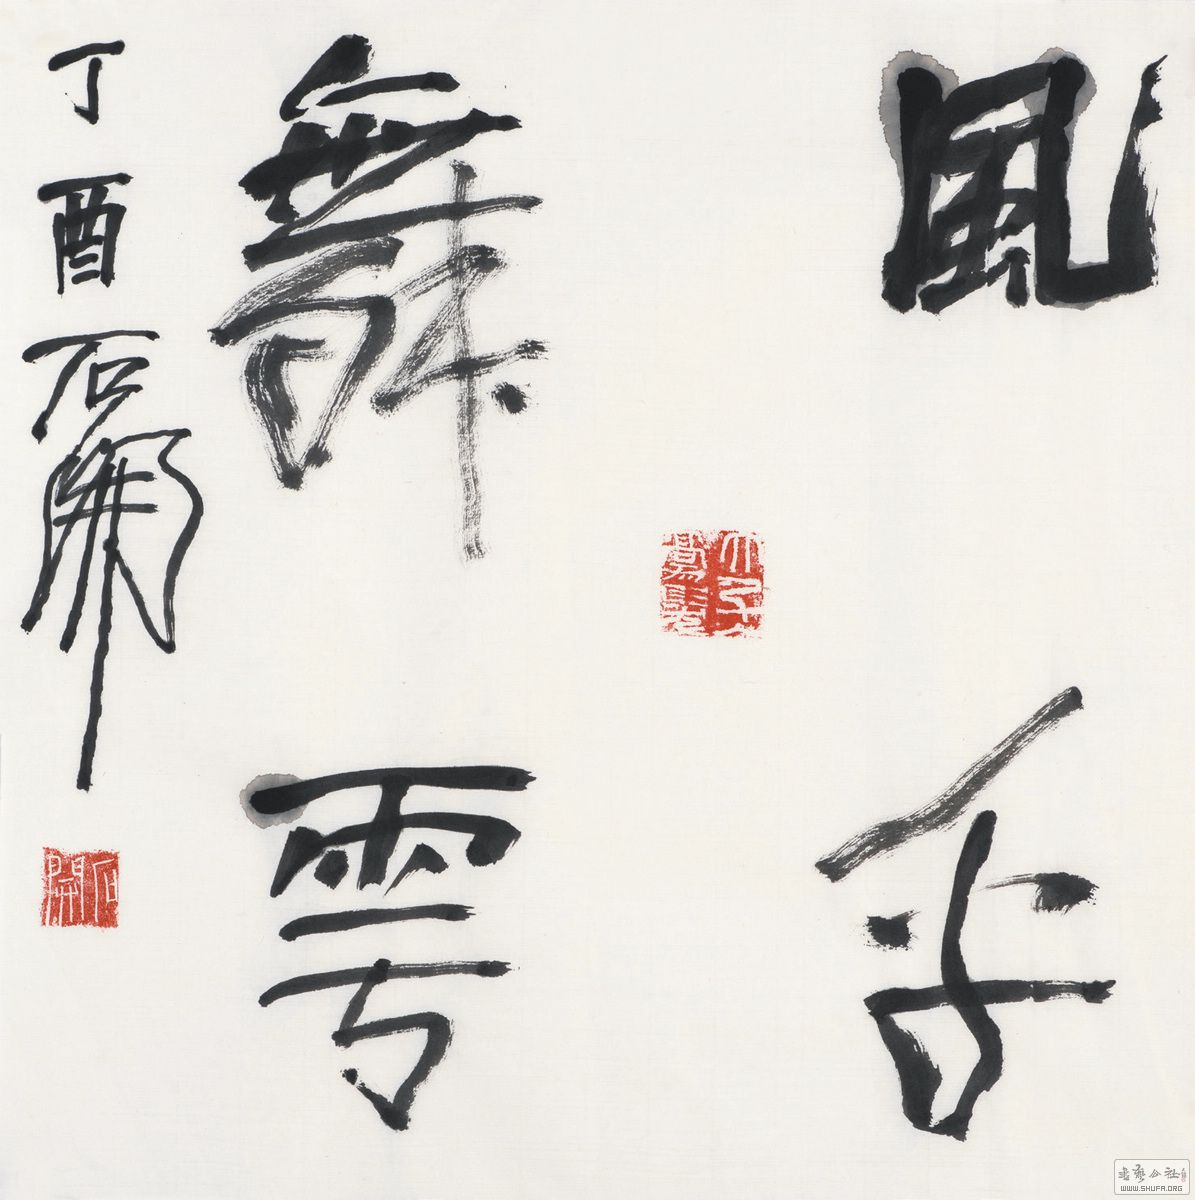 風乎
舞雩
丁酉石開
石開
書藝公社
WWW.SHUFA.ORG